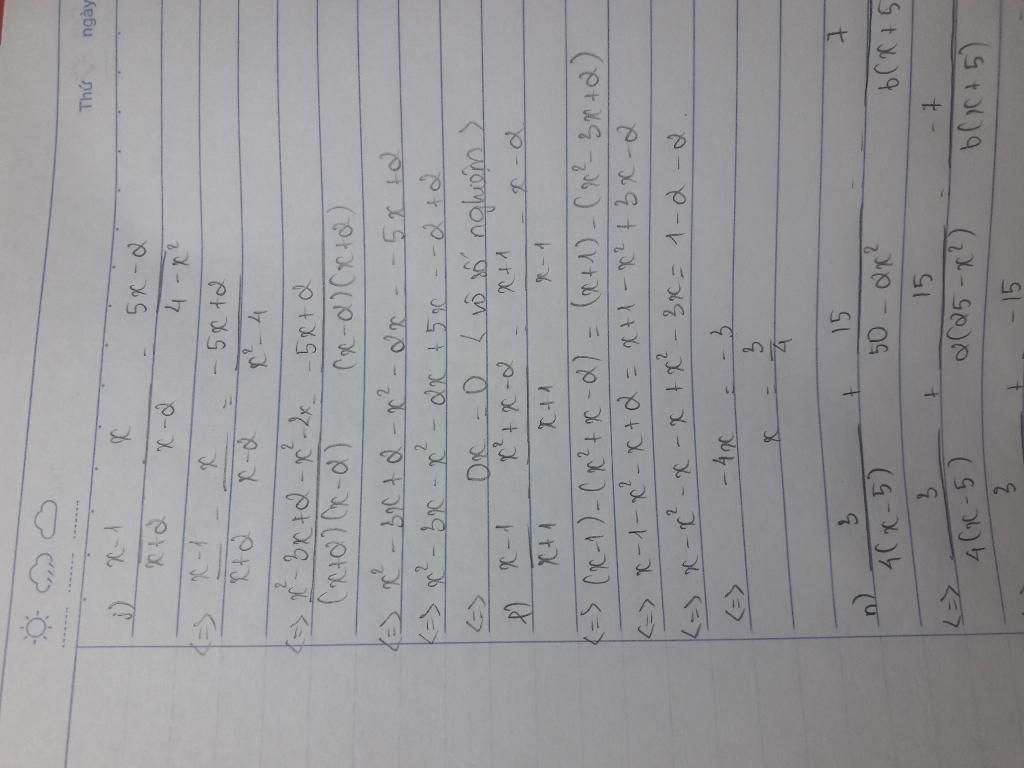 Thứ ngày
j) x-1 x 5x-2
x+2 x-2 4-x²
<=> x-1 - x = -5x+2
x+2 x-2 x²-4
<=> x²-3x+2-x²-2x = -5x+2
(x+2)(x-2) (x-2)(x+2)
<=> x²-3x+2-x²-2x = -5x+2
<=> x²-3x-x²-2x+5x = -2+2
<=> 0x = 0 < vô số nghiệm >
x-1 x²+x-2 = x+1 - x-2
x+1 x+1 x-1
<=> (x-1)-(x²+x-2) = (x+1)-(x²-3x+2)
<=> x-1-x²-x+2 = x+1-x²+3x-2
<=> x-x²-x-x+x²-3x = 1-2-2
<=> -4x = -3
x = 3
4
n) 3 + 15 - 7
4(x-5) 50-2x² 6(x+5
<=> 3 + 15 = -7
4(x-5) 2(25-x²) 6(x+5)
3 + -15